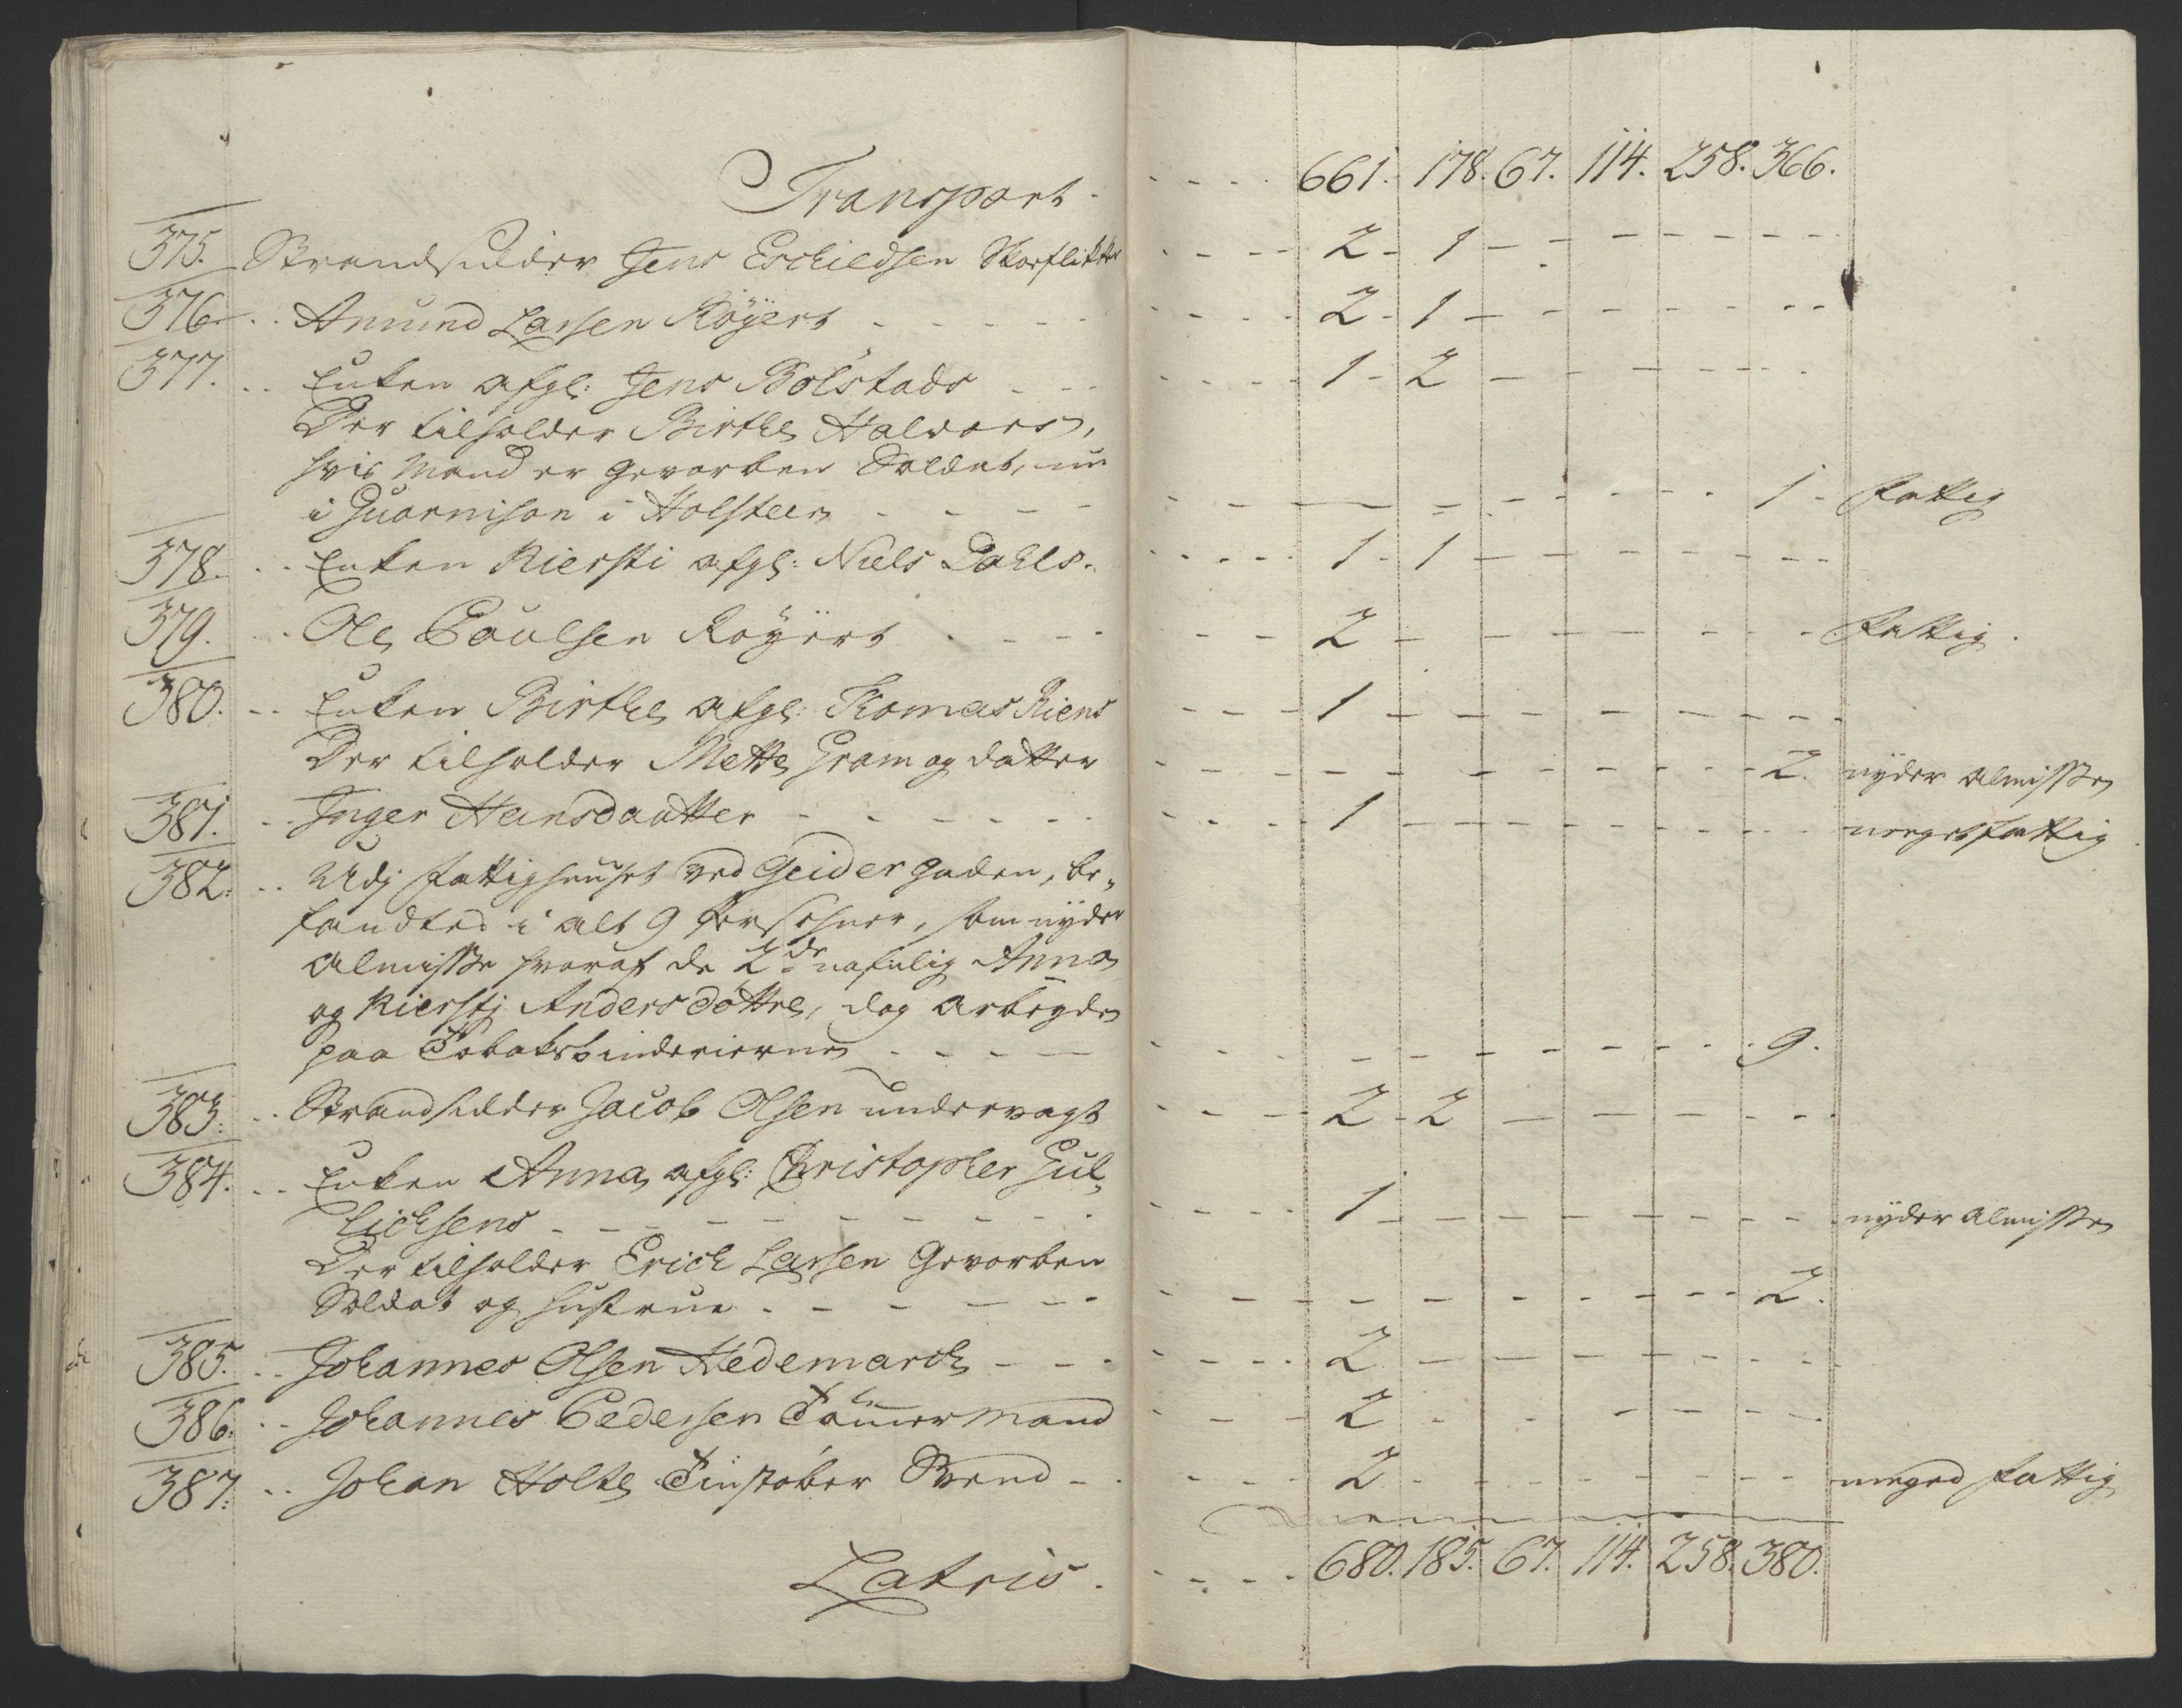 Transport - - - - - 661. 178. 67. 114. 258. 366.
375. Strandsidder Jens Eschildsen Skoeflikker - - - - 2 - 1 - - - - - - -
376. .. Amund Larsen Röÿert - - - - - 2 - 1 - - - - - - -
377. .. Enken afgl: Jens Bölstads - - - - - 1 - 2 - - - - - -
Der tilholder Birthe Halvors,
hvis Mand er gevorben Soldat, nu
i Guarnison i Holsteen - - - - - - - - - 1 - fattig
378. .. Enken Kiersti afgl: Niels Dahls. - - - - 1 - 1 - - - - - -
379. .. Ole Poulsen Röÿert - - - - - 2 - - - - - - fattig.
380. .. Enken Birthe afgl: Thomas Kiens - - - 1 - - - - - - -
Der tilholder Mette Gram og datter - - - - - - - - 2. nyder almisse
381. .. Inger Hansdaatter - - - - - 1 - - - - - - - meget fattig
382. .. Udj fattighuuset ved Geider gaden, be-
fandtes i alt 9 Persohner, som nyder
Almisse hvoraf de 2de nafnlig Anna
og Kierstj Andersdöttre, dog arbeyder
paa Tobaksbinderierne - - - - - - - - - 9.
383. .. Strandsidder Jacob Olsen undervagt - - - 2 - 2 - - - - - -
384. .. Enken Anna afgl: Christopher Gul-
lichsens - - - - - - 1 - - - - - - nyder almisse
Der tilholder Erich Larsen Gevorben
Soldat og hustrue - - - - - - - - - 2.
385. .. Johannes Olsen Hedemarch - - - - 2 - - - - - -
386. .. Johannes Pedersen Tömmermand - - - 2 - - - - - -
387. .. Johan Holte Tinstöber Svend - - - - 2 - - - - - - meged fattig
Lateris. - - - - 680. 185. 67. 114. 258. 380.